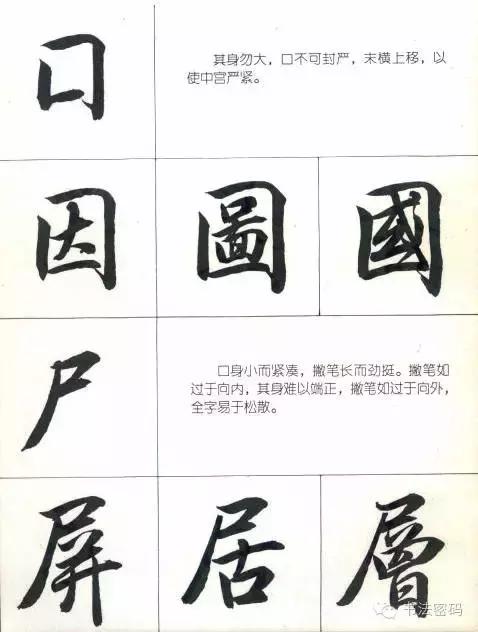 囗
其身勿大，口不可封严，末横上移，以
使中宫严紧。
因 圖 國
尸
口身小而紧凑，撇笔长而劲挺。撇笔如
过于向内，其身难以端正，撇笔如过于向外，
全字易于松散。
屏 居 層
书法密码